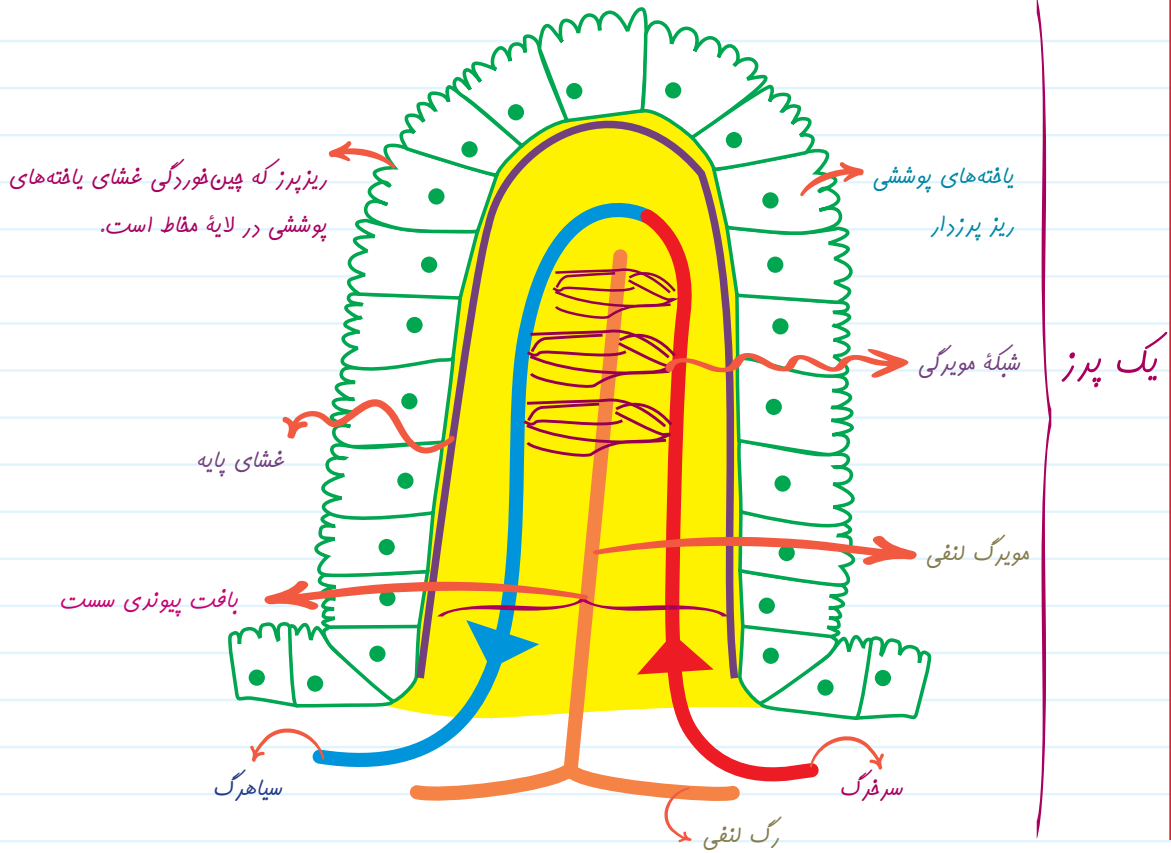 یک پرز
یاخته‌های پوششی
ریز پرزدار
ریزپرز که چین‌خوردگی غشای یاخته‌های
پوششی در لایهٔ مخاط است.
شبکهٔ مویرگی
غشای پایه
مویرگ لنفی
بافت پیوندی سست
سرخرگ
سیاهرگ
رگ لنفی